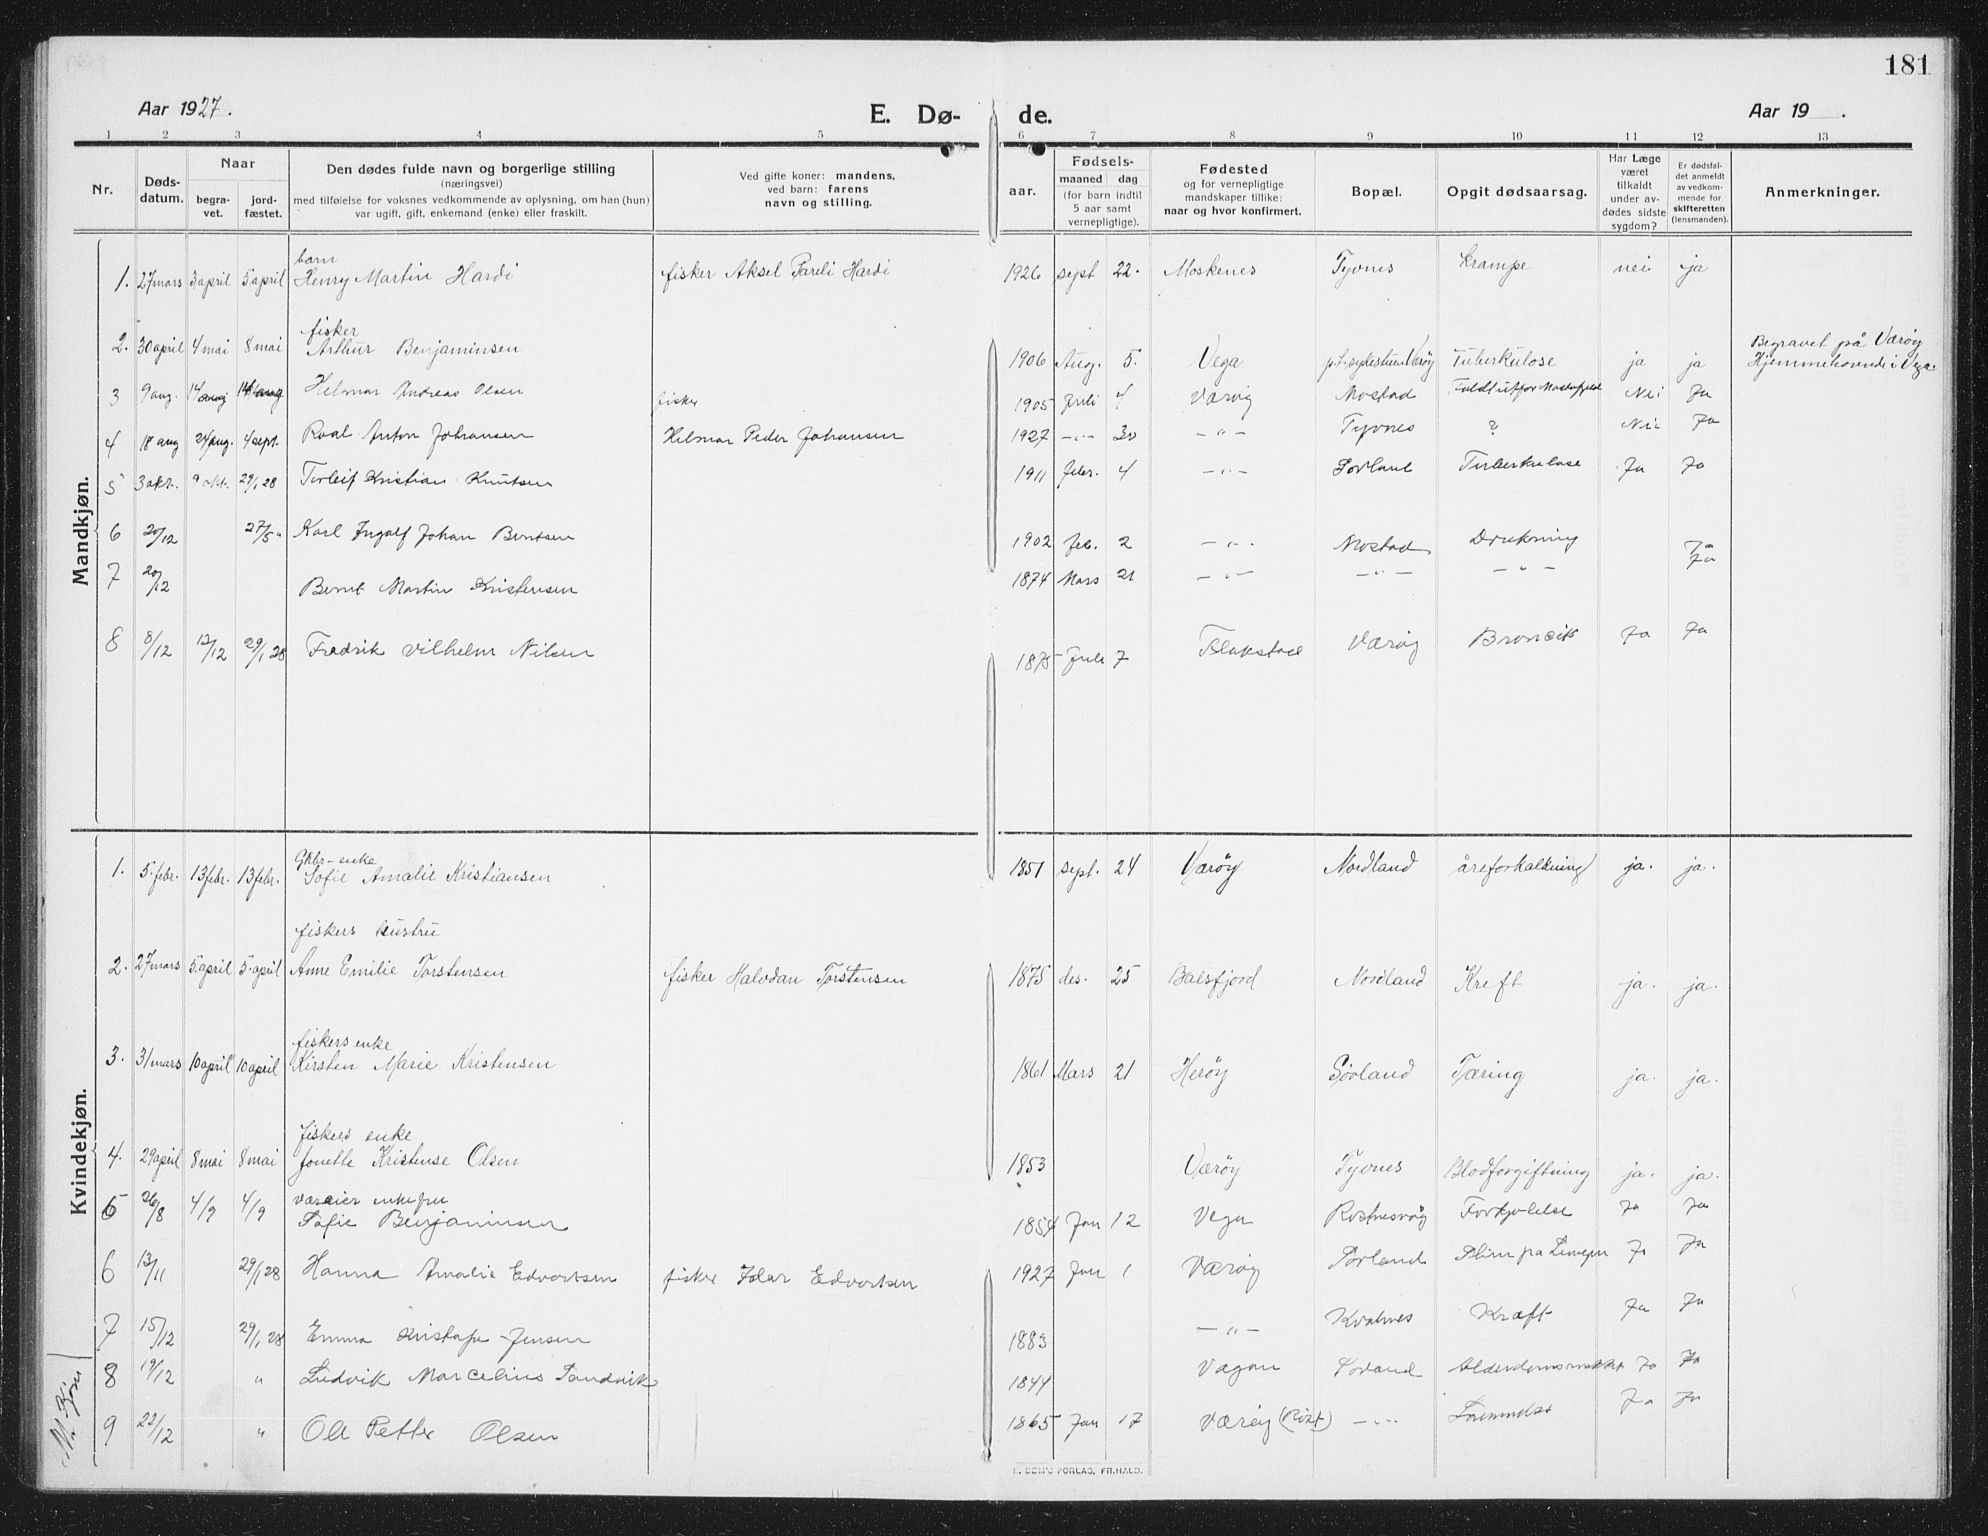 181
Aar 1927.
E. Dø- de.
Aar 19 .
1 2 3 4 5 6 7 8 9 10 11 12 13
Nr.
Døds-
datum.
Naar
begra-
vet.
jord-
fæstet.
Den dødes fulde navn og borgerlige stilling
(næringsvei)
med tilføielse for voksnes vedkommende av oplysning, om han (hun)
var ugift, gift, enkemand (enke) eller fraskilt.
Ved gifte koner: mandens,
ved barn: farens
navn og stilling.
Fødsels-
aar. maaned dag
(for barn indtil
5 aar samt
vernepligtige).
Fødested
og for vernepligtige
mandskaper tillike:
naar og hvor konfirmert.
Bopæl.
Opgit dødsaarsag.
Har Læge
været
tilkaldt
under av-
dødes sidste
sygdom?
Er dødsfal-
det anmeldt
av vedkom-
mende for
skifteretten
(lensmanden).
Anmerkninger.
Mandkjøn.
barn
1. 27 mars 3 april 5 april Henry Martin Hardi fisker Aksel Pareli Hardi 1926 sept 22. Moskenes Tyvnes Krampe nei ja
fisker
2. 30 april 4 mai 8 mai Arthur Benjaminsen 1906 Aug. 5. Vega p.t. sykestuen Værøy Tuberkulose ja ja Begravet på Værøy
Hjemmehørende i Vega
3 9 aug. 14 aug 14 aug Helmar Andreas Olsen 1905 Juli 4 Værøy Mostad Nei Ja
fisker
4 18 aug 24 aug. 4 sept. Roal Anton Johansen Helmar Peder Johansen 1927 -"- 30 -"- Tyvnes ? Nei Ja
5 3 okt. 9 okt. 29/1 28 Torleif Kristian Knutsen 1911 febr. 4 -"- Sørland Tuberkulose Ja Ja
6 20/12 27/5 " Karl Ingolf Johan Berntsen 1902 feb. 2 -"- Mostad Drukning Ja
7 20/12 Bernt Martin Kristensen 1874 Mars 21 -"- -"- -"- Ja
8 8/12 13/12 29/1 28 Fredrik Vilhelm Nilsen 1875 Juli 7 Flakstad Værøy Bronsik Ja Ja
Kvindekjøn.
Gkbr-enke
1. 5. febr. 13 febr. 13 febr. Sofie Amalie Kristiansen 1851 sept. 24 Værøy Nordland åreforkalkning ja. ja.
fiskers hustru
2. 27 mars 5. april 5. april Anne Emilie Torstensen fisker Halvdan Torstensen 1875 des. 25 Balsfjord Nordland Kreft ja. ja.
fiskers enke
3. 31 mars 10 april 10 april Kirsten Marie Kristensen 1861 Mars 21 Herøy Sørland Tæring ja. ja.
fiskers enke
4. 29 april 8 mai 8 mai Jonette Kristense Olsen 1853 Værøy Tyvnes Blodforgiftning ja. ja.
enkefru
5 26/8 4/9 4/9 Sofie Benjaminsen 1854 Jan 12 Vega Røstnesvåg Forkjølelse Ja Ja
6 13/11 29/1 28 Hanna Amalie Edvartsen fisker Edvartsen 1927 Jan 1 Værøy Sørland Slim på Lungen Ja Ja
7 15/12 29/1 28 Emma Jensen 1883 -"- Kvalnes Kræft Ja Ja
8 19/12 " Ludvik Marcelius Sandvik 1844 Vågan Sørland Ja Ja
9 22/12 " Ole Petter Olsen 1865 Jan 17 Værøy (Røst) -"- Ja Ja
M. Kjøn
SEM'S FORLAG, FR.HALD.